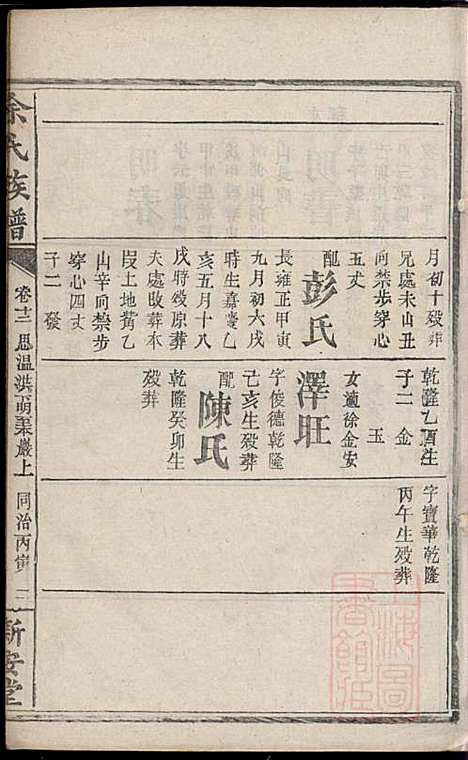 月初十殁葬
兄處未山丑
向禁步穿心
五丈
配彭氏
長雍正甲寅
九月初六戌
時生嘉慶乙
亥五月十八
戌時殁原葬
夫處改葬本
段土地觜乙
山辛向禁步
穿心四丈
子二 發
乾隆乙酉生
子二 金
玉
女適徐金安
澤旺
字俊德乾隆
己亥生殁葬
配陳氏
乾隆癸卯生
殁葬
字寶華乾隆
丙午生殁葬
余氏族譜
卷十二 思溫洪萌渠嚴上 同治丙寅
新安堂
上海圖書館藏